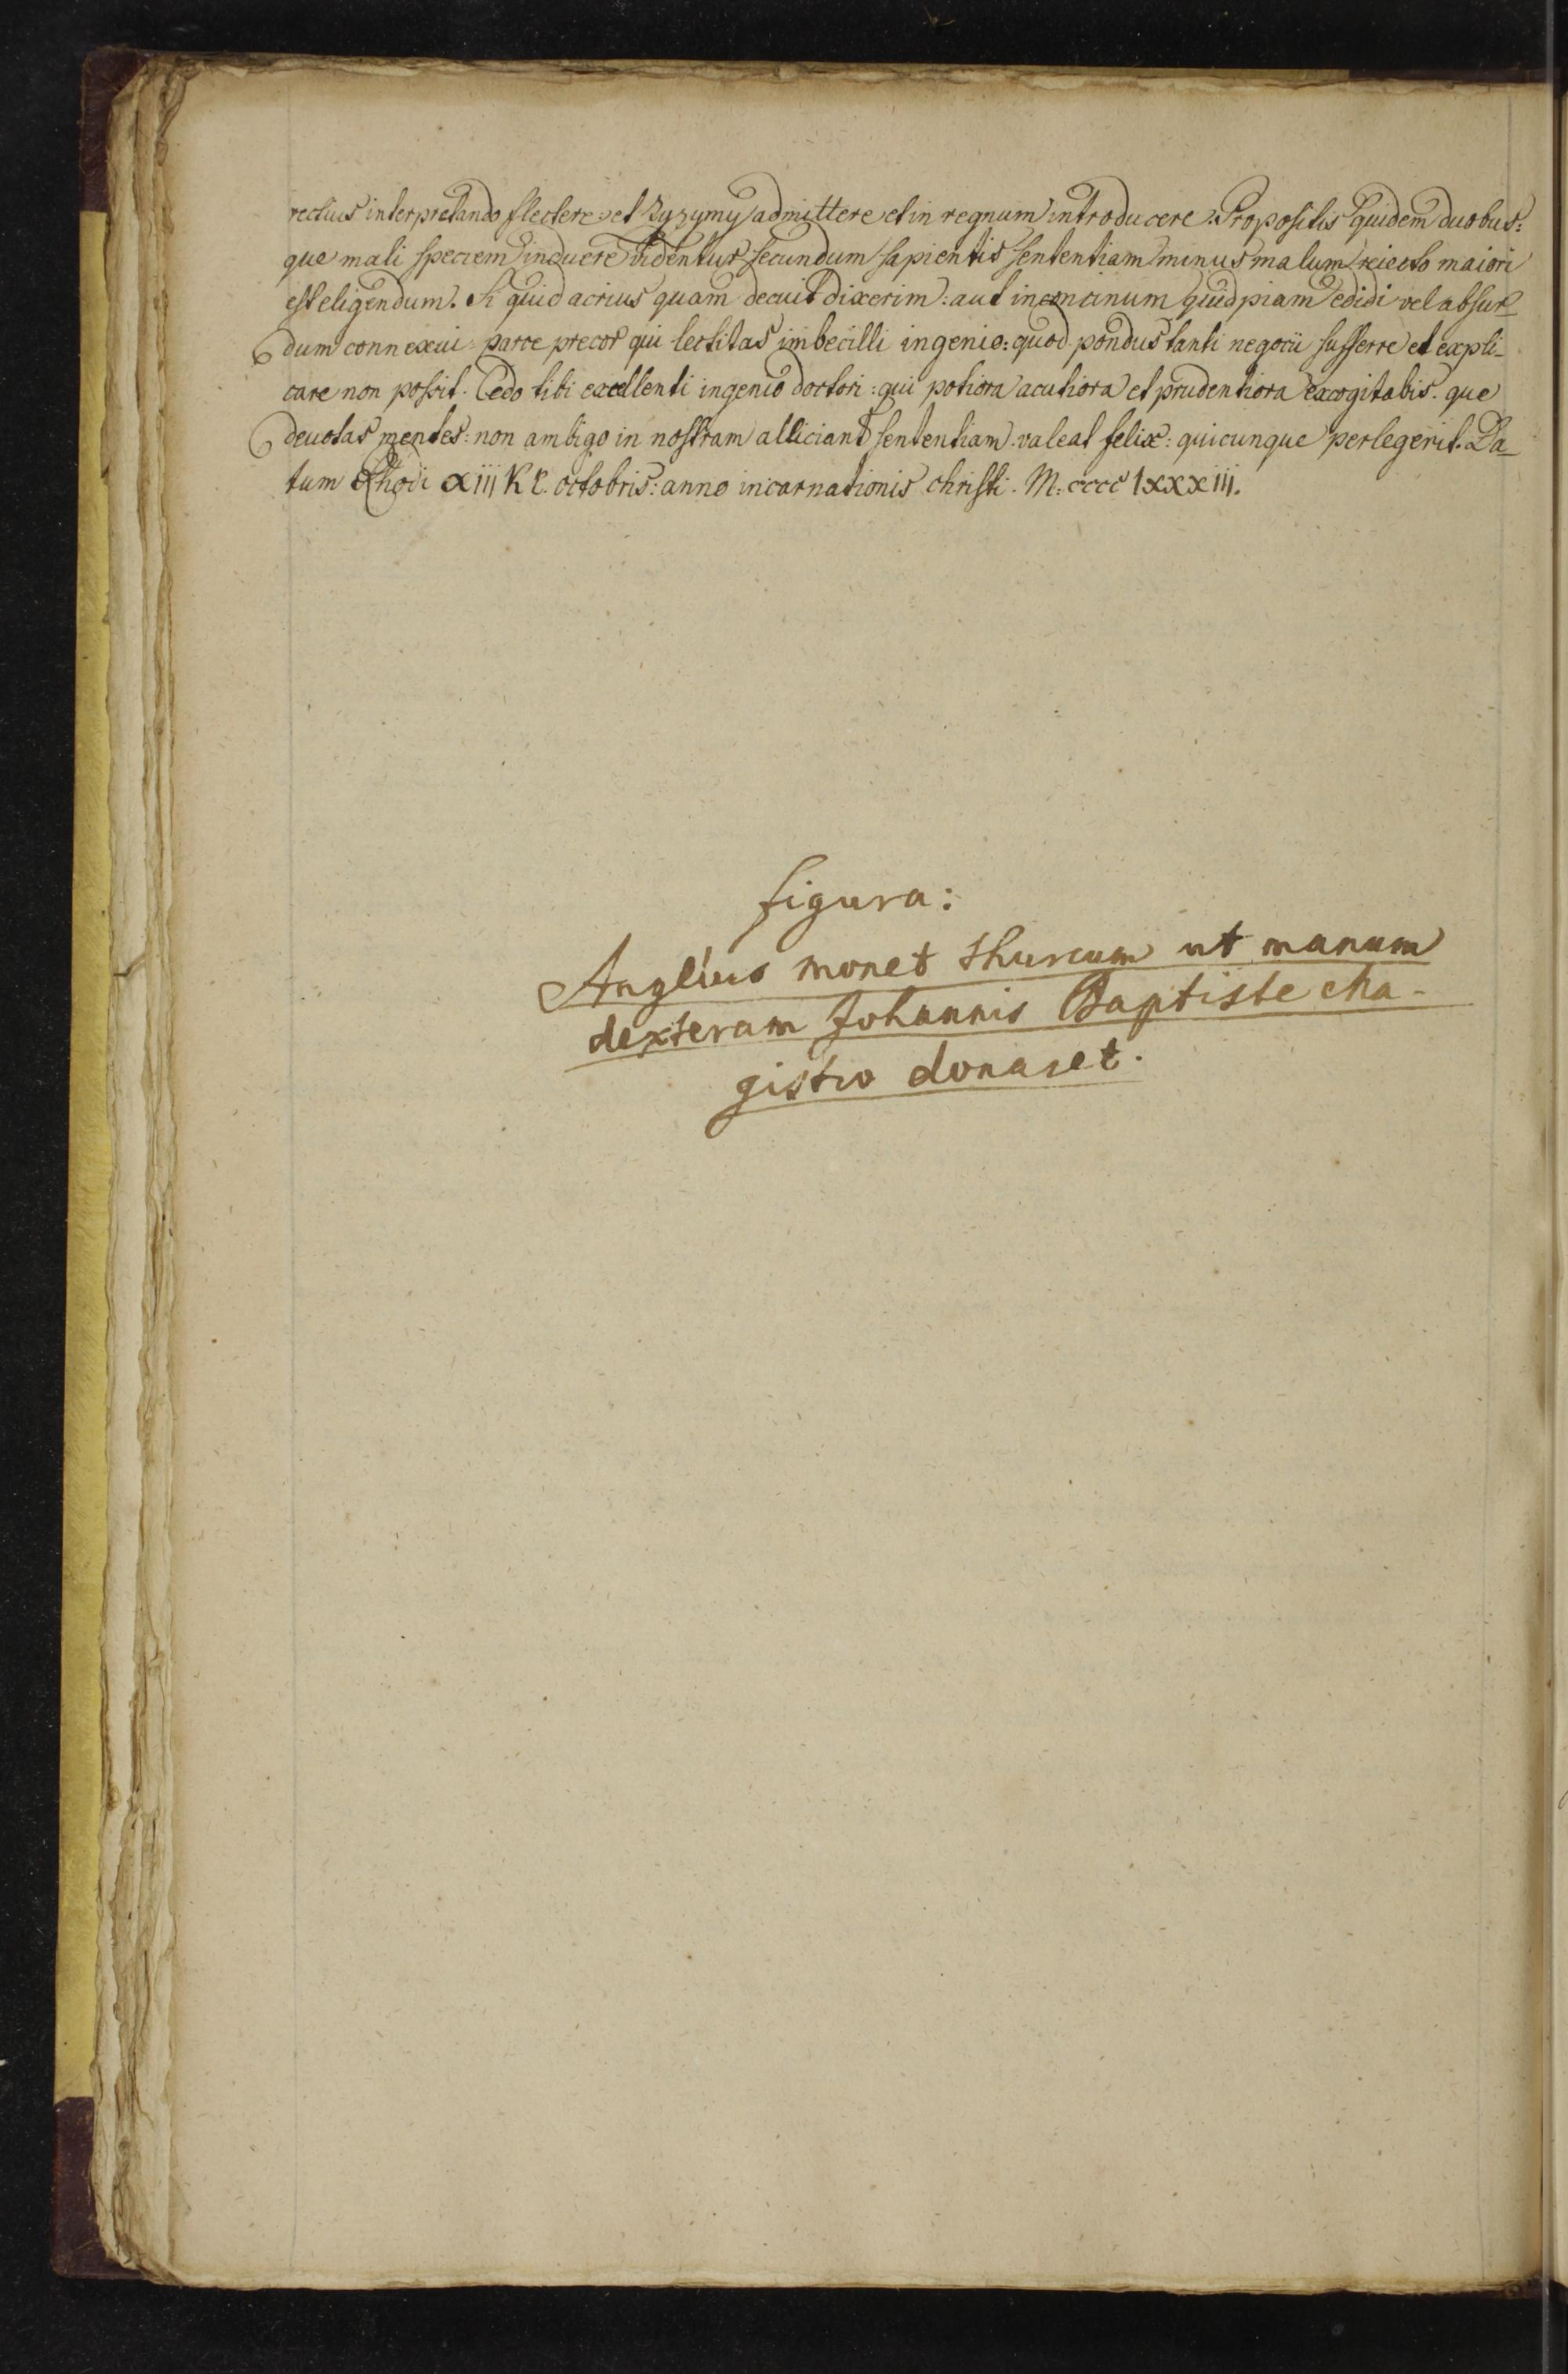 rectius interpretando flectere: et Zyzymy admittere et in regnum introducere. Propositis quidem duobus:
que mali speciem induere videntur secundum sapientis sententiam minus malum reiecto maiori
est eligendum. Si quid acrius quam decuit dixerim: aut inconcinum quidpiam edidi vel absur_
dum connexui parce precor qui lectitas imbecilli ingenio: quod pondus tanti negocii sufferre et expli_
care non possit. Cedo tibi excellenti ingenio doctori: qui potiora acutiora et prudentiora excogitabis. que
deuotas mentes: non ambigo in nostram alliciant sententiam. valeat felix: quicunque perlegerit. Da_
tum Rhodi xiii Kl. octobris: anno incarnationis christi. M. cccc lxxxiii.
figura:
Anglius monet thurcum ut manum
dexteram Johannis Baptiste cha-
gistro donaret.